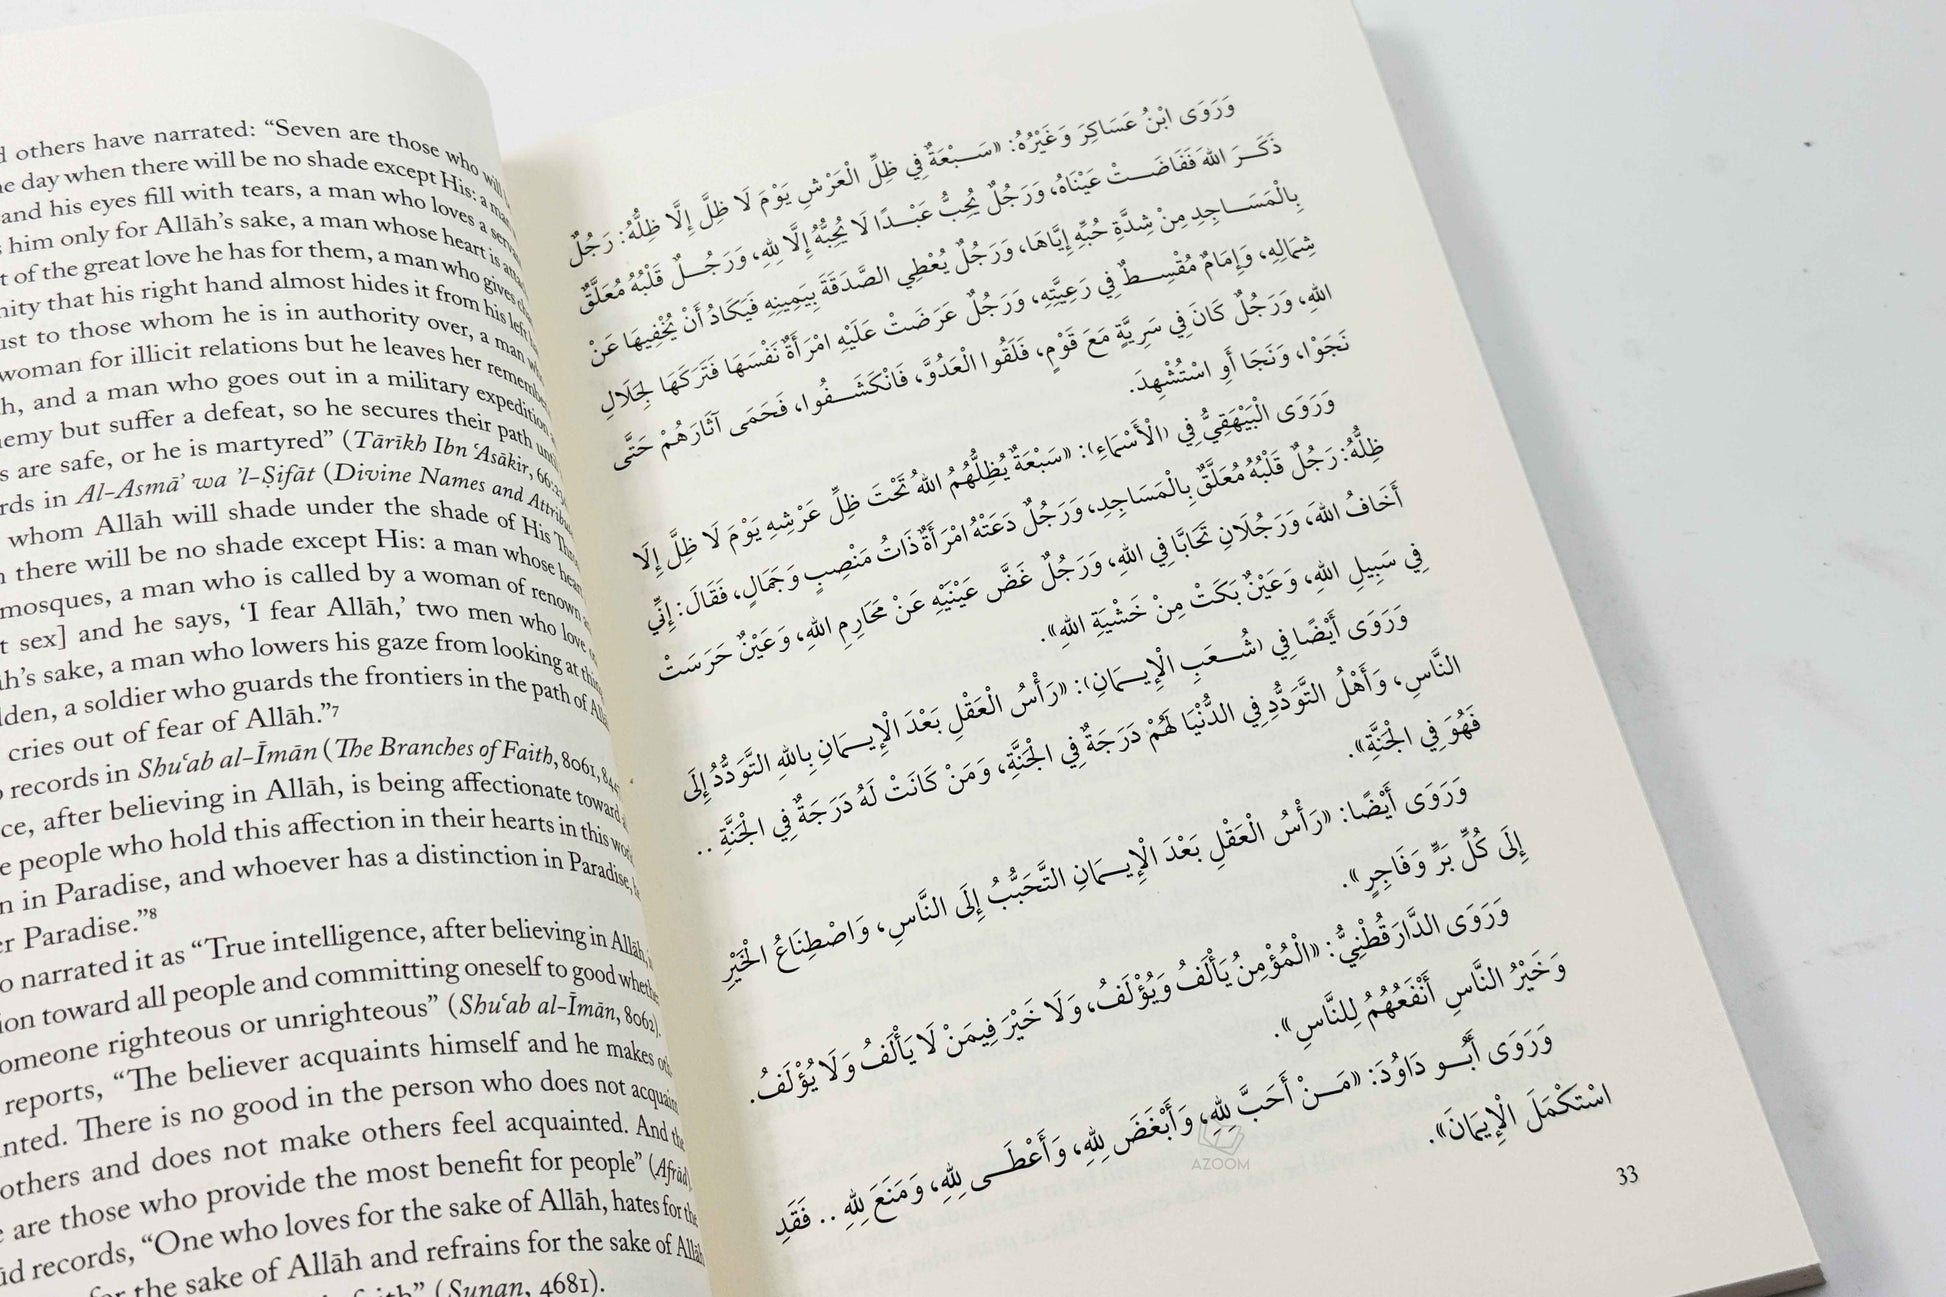 d others have narrated: “Seven are those who will
e day when there will be no shade except His: a man
and his eyes fill with tears, a man who loves a servant
s him only for Allāh’s sake, a man whose heart is
t of the great love he has for them, a man who gives
nity that his right hand almost hides it from his left
ust to those whom he is in authority over, a man
woman for illicit relations but he leaves her
h, and a man who goes out in a military expedition
nemy but suffer a defeat, so he secures their path until
s are safe, or he is martyred” (Tārīkh Ibn ʿAsākir,
rds in Al-Asmāʾ wa ’l-Ṣifāt (Divine Names and
whom Allāh will shade under the shade of His
n there will be no shade except His: a man whose
mosques, a man who is called by a woman of renown
t sex] and he says, ‘I fear Allāh,’ two men who love
h’s sake, a man who lowers his gaze from looking at
dden, a soldier who guards the frontiers in the path of
cries out of fear of Allāh.”7
o records in Shuʿab al-Īmān (The Branches of Faith, 8061,
ce, after believing in Allāh, is being affectionate toward
e people who hold this affection in their hearts in this
n in Paradise, and whoever has a distinction in Paradise,
er Paradise.”8
o narrated it as “True intelligence, after believing in Allāh,
ion toward all people and committing oneself to good
omeone righteous or unrighteous” (Shuʿab al-Īmān, 8062).
reports, “The believer acquaints himself and he makes
nted. There is no good in the person who does not
others and does not make others feel acquainted. And the
e are those who provide the most benefit for people” (Afrād).
ūd records, “One who loves for the sake of Allāh, hates for the
for the sake of Allāh and refrains for the sake of Allāh
faith” (Sunan, 4681).
وَرَوَى ابْنُ عَسَاكِرَ وَغَيْرُهُ: «سَبْعَةٌ فِي ظِلِّ الْعَرْشِ يَوْمَ لَا ظِلَّ إِلَّا ظِلُّهُ: رَجُلٌ
ذَكَرَ اللهَ فَفَاضَتْ عَيْنَاهُ، وَرَجُلٌ يُحِبُّ عَبْدًا لَا يُحِبُّهُ إِلَّا لِلّٰهِ، وَرَجُلٌ قَلْبُهُ مُعَلَّقٌ
بِالْمَسَاجِدِ مِنْ شِدَّةِ حُبِّهِ إِيَّاهَا، وَرَجُلٌ يُعْطِي الصَّدَقَةَ بِيَمِينِهِ فَيَكَادُ أَنْ يُخْفِيهَا عَنْ
شِمَالِهِ، وَإِمَامٌ مُقْسِطٌ فِي رَعِيَّتِهِ، وَرَجُلٌ عَرَضَتْ عَلَيْهِ امْرَأَةٌ نَفْسَهَا فَتَرَكَهَا لِجَلَالِ
اللهِ، وَرَجُلٌ كَانَ فِي سَرِيَّةٍ مَعَ قَوْمٍ، فَلَقُوا الْعَدُوَّ، فَانْكَشَفُوا، فَحَمَى آثَارَهُمْ حَتَّى
نَجَوْا، وَنَجَا أَوِ اسْتُشْهِدَ.
وَرَوَى الْبَيْهَقِيُّ فِي (الْأَسْمَاءِ): «سَبْعَةٌ يُظِلُّهُمُ اللهُ تَحْتَ ظِلِّ عَرْشِهِ يَوْمَ لَا ظِلَّ إِلَّا
ظِلُّهُ: رَجُلٌ قَلْبُهُ مُعَلَّقٌ بِالْمَسَاجِدِ، وَرَجُلٌ دَعَتْهُ امْرَأَةٌ ذَاتُ مَنْصِبٍ وَجَمَالٍ، فَقَالَ: إِنِّي
أَخَافُ اللهَ، وَرَجُلَانِ تَحَابَّا فِي اللهِ، وَرَجُلٌ غَضَّ عَيْنَيْهِ عَنْ مَحَارِمِ اللهِ، وَعَيْنٌ حَرَسَتْ
فِي سَبِيلِ اللهِ، وَعَيْنٌ بَكَتْ مِنْ خَشْيَةِ اللهِ».
وَرَوَى أَيْضًا فِي (شُعَبِ الْإِيمَانِ): «رَأْسُ الْعَقْلِ بَعْدَ الْإِيمَانِ بِاللهِ التَّوَدُّدُ إِلَى
النَّاسِ، وَأَهْلُ التَّوَدُّدِ فِي الدُّنْيَا لَهُمْ دَرَجَةٌ فِي الْجَنَّةِ، وَمَنْ كَانَتْ لَهُ دَرَجَةٌ فِي الْجَنَّةِ ..
فَهُوَ فِي الْجَنَّةِ».
وَرَوَى أَيْضًا: «رَأْسُ الْعَقْلِ بَعْدَ الْإِيمَانِ التَّحَبُّبُ إِلَى النَّاسِ، وَاصْطِنَاعُ الْخَيْرِ
إِلَى كُلِّ بَرٍّ وَفَاجِرٍ».
وَرَوَى الدَّارَقُطْنِيُّ: «الْمُؤْمِنُ يَأْلَفُ وَيُؤْلَفُ، وَلَا خَيْرَ فِيمَنْ لَا يَأْلَفُ وَلَا يُؤْلَفُ.
وَخَيْرُ النَّاسِ أَنْفَعُهُمُ لِلنَّاسِ».
وَرَوَى أَبُو دَاوُدَ: «مَنْ أَحَبَّ لِلّٰهِ، وَأَبْغَضَ لِلّٰهِ، وَأَعْطَى لِلّٰهِ، وَمَنَعَ لِلّٰهِ .. فَقَدِ
اسْتَكْمَلَ الْإِيمَانَ».
33
AZOOM